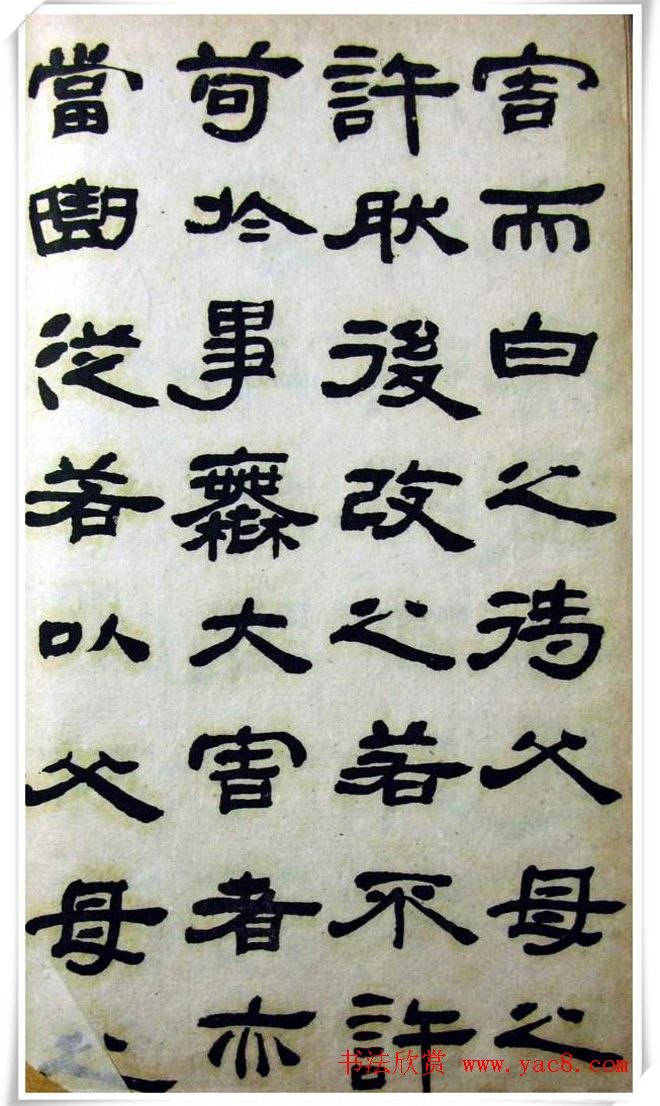 害而白之待父母之
許肰後改之若不許
苟於事無大害者亦
當曲從若以父母之
书法欣赏 www.yac8.com